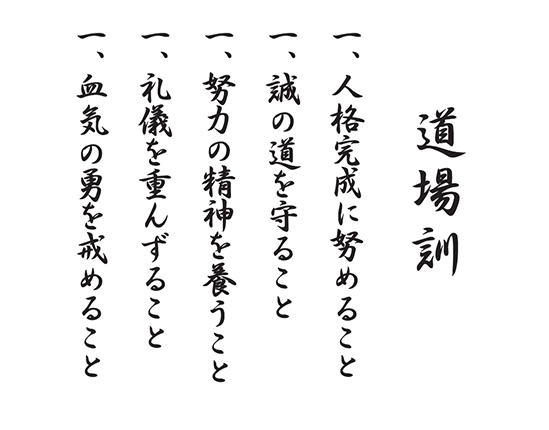 道場訓
一、人格完成に努めること
一、誠の道を守ること
一、努力の精神を養うこと
一、礼儀を重んずること
一、血気の勇を戒めること